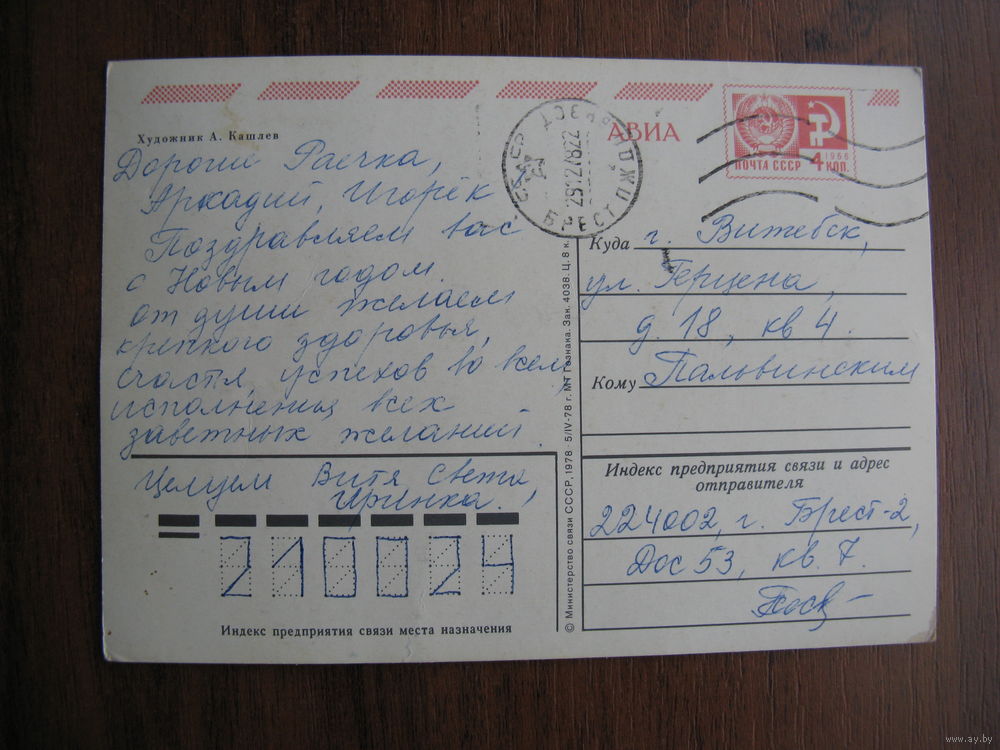 Художник А. Кашлев
АВИА
1966
ПОЧТА СССР 4 КОП.
БРЕСТ
29127822
БРЕСТ
Дорогие Раечка,
Аркадий, Игорёк
Поздравляем вас
с Новым годом.
от души желаем
крепкого здоровья,
счастья, успехов во всем,
исполненья всех
заветных желаний.
Целуем Витя Света,
Иринка.
210024
Индекс предприятия связи места назначения
© Министерство связи СССР, 1978 · 5/IV-78 г. МТ Гознака. Зак. 4038. Ц. 8 к.
Куда г. Витебск,
ул. Герцена,
д. 18, кв 4.
Кому Пальвинским
Индекс предприятия связи и адрес
отправителя
224002, г. Брест-2,
Дос 53, кв. 7.
www.ay.by